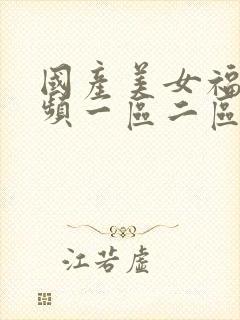 國產美女福
頻一區二區
江若虛